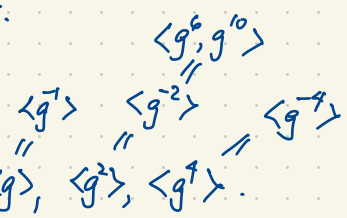 .
<g⁶, g¹⁰>
||
<g⁻¹> <g⁻²> <g⁻⁴>
|| || ||
g>, <g²>, <g⁴> .